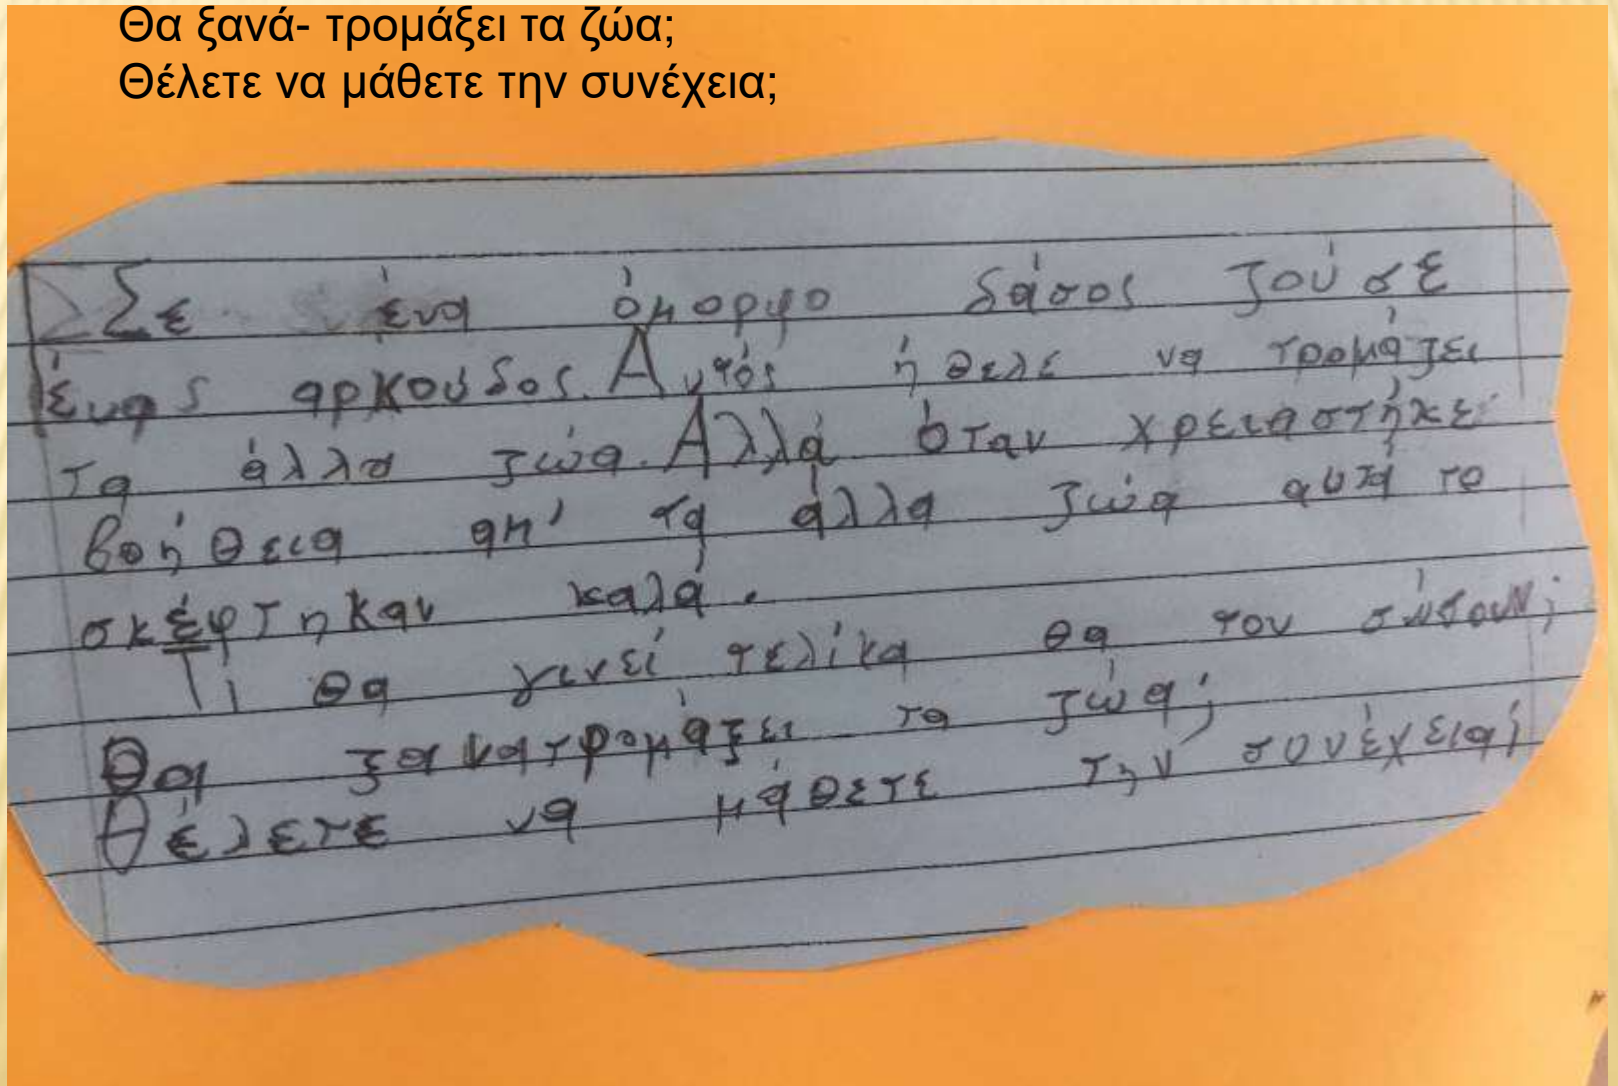 Θα ξανά- τρομάξει τα ζώα;
Θέλετε να μάθετε την συνέχεια;
Σε ένα όμορφο δάσος ζούσε
ένας αρκούδος. Αυτός ήθελε να τρομάζει
τα άλλα ζώα. Αλλά όταν χρειαστήκε
βοήθεια απ' τα άλλα ζώα αυτά το
σκέφτηκαν καλά.
Τι θα γινεί τελίκα θα τον σώσουν;
Θα ξανατρομάξει τα ζώα;
Θέλετε να μάθετε την συνέχεια;